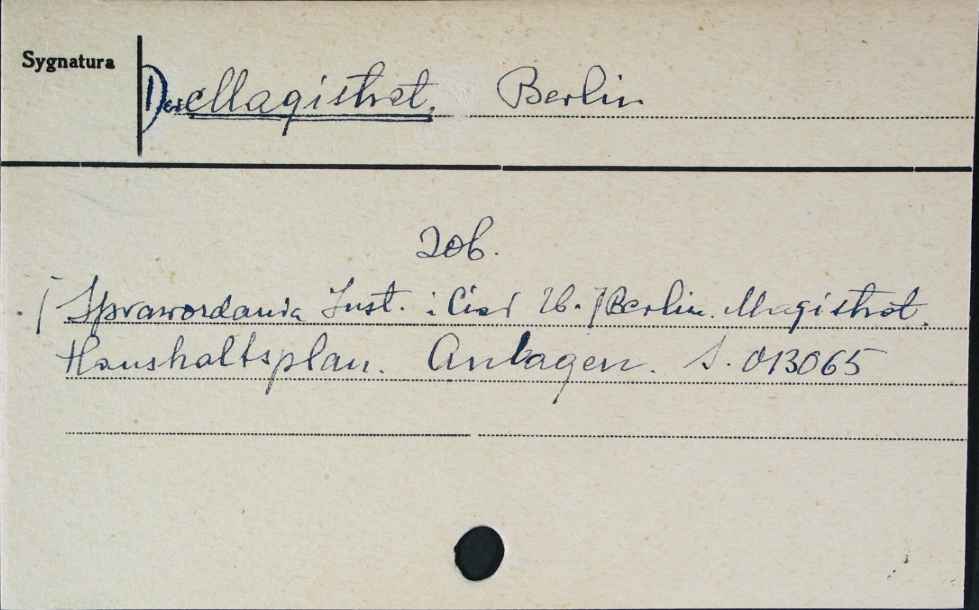 Sygnatura
Der Magistrat. Berlin
zob.
[Sprawozdania Inst. i Ciał Ub.] Berlin. Magistrat.
Haushaltsplan. Anlagen. S. 013065